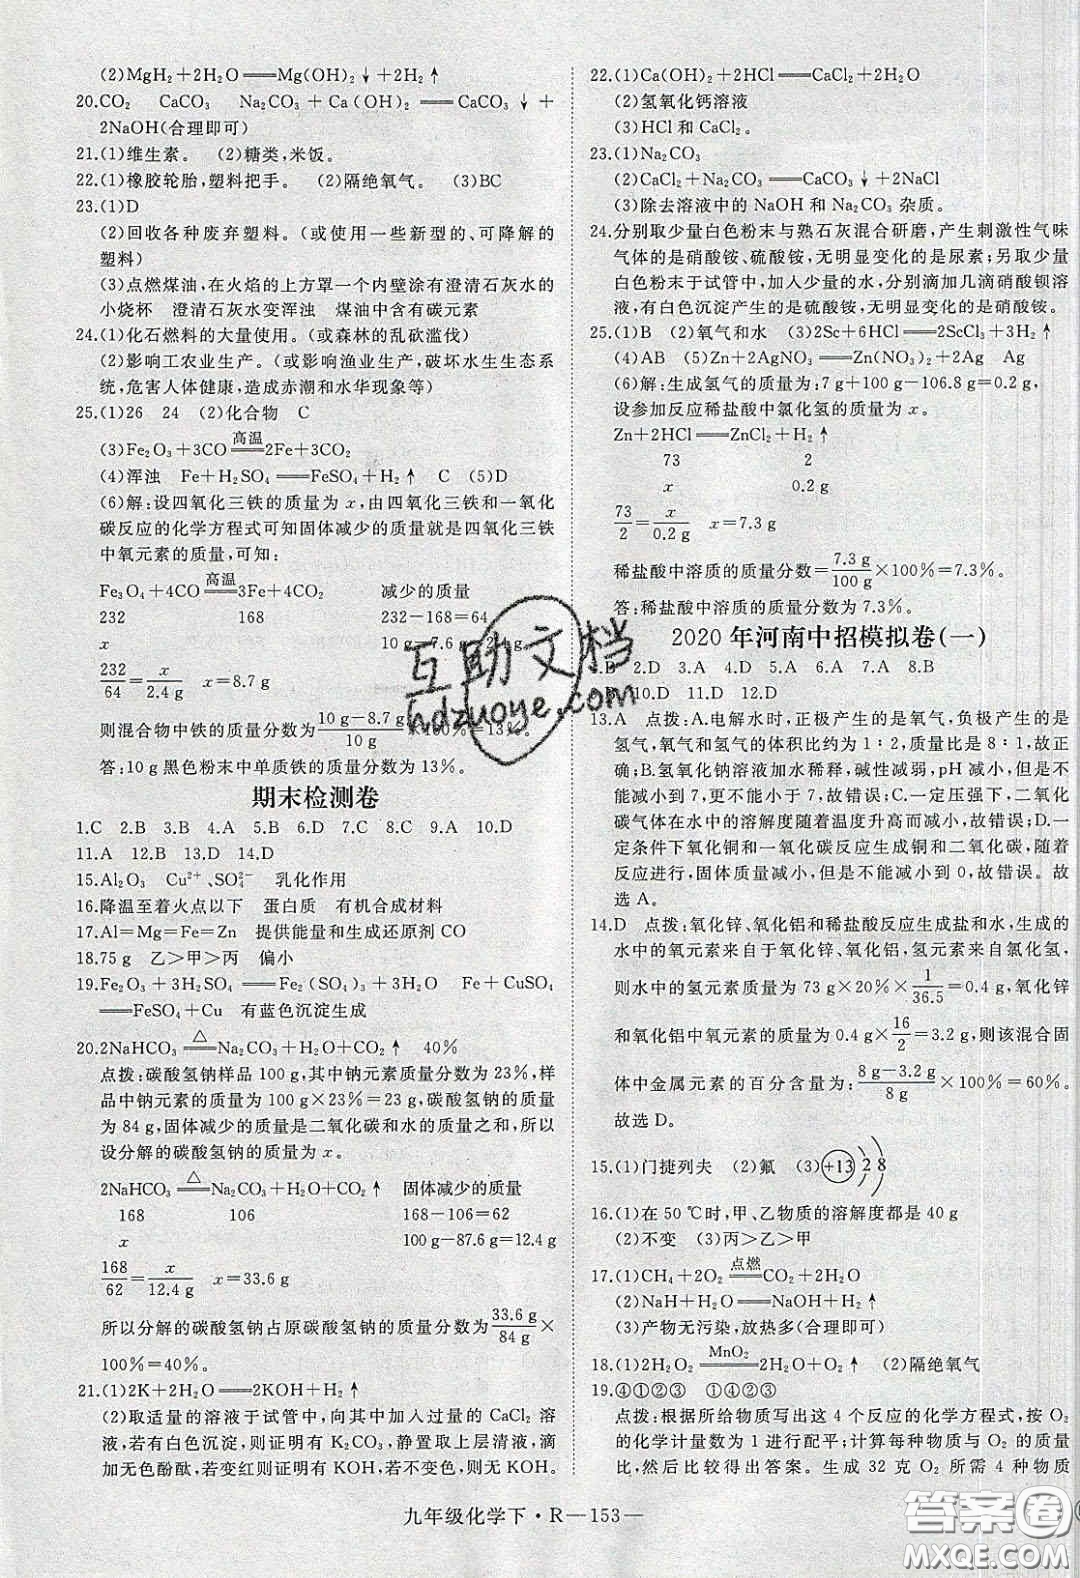 (2)MgH₂+2H₂O══Mg(OH)₂↓+2H₂↑
20.CO₂ CaCO₃ Na₂CO₃+Ca(OH)₂══CaCO₃↓+
2NaOH(合理即可)
21.(1)维生素。 (2)糖类,米饭。
22.(1)橡胶轮胎,塑料把手。 (2)隔绝氧气。 (3)BC
23.(1)D
(2)回收各种废弃塑料。(或使用一些新型的、可降解的
塑料)
(3)点燃煤油,在火焰的上方罩一个内壁涂有澄清石灰水的
小烧杯 澄清石灰水变浑浊 煤油中含有碳元素
24.(1)化石燃料的大量使用。(或森林的乱砍滥伐)
(2)影响工农业生产。(或影响渔业生产,破坏水生生态系
统,危害人体健康,造成赤潮和水华现象等)
25.(1)26 24 (2)化合物 C
(3)Fe₂O₃+3CO═高温═2Fe+3CO₂
(4)浑浊 Fe+H₂SO₄══FeSO₄+H₂↑ C (5)D
(6)解:设四氧化三铁的质量为 x,由四氧化三铁和一氧化
碳反应的化学方程式可知固体减少的质量就是四氧化三铁
中氧元素的质量,可知:
Fe₃O₄+4CO═高温═3Fe+4CO₂ 减少的质量
232 168 232-168=64
x 10 g-7.6 g=2.4 g
232/64=x/2.4 g x=8.7 g
则混合物中铁的质量分数为(10 g-8.7 g)/10 g×100%=13%。
答:10 g黑色粉末中单质铁的质量分数为13%。
期末检测卷
1.C 2.B 3.B 4.A 5.B 6.D 7.C 8.C 9.A 10.D
11.A 12.B 13.D 14.D
15.Al₂O₃ Cu²⁺、SO₄²⁻ 乳化作用
16.降温至着火点以下 蛋白质 有机合成材料
17.Al=Mg=Fe=Zn 提供能量和生成还原剂 CO
18.75 g 乙>甲>丙 偏小
19.Fe₂O₃+3H₂SO₄══Fe₂(SO₄)₃+3H₂O Fe+CuSO₄
══FeSO₄+Cu 有蓝色沉淀生成
20.2NaHCO₃═△═Na₂CO₃+H₂O+CO₂↑ 40%
点拨:碳酸氢钠样品100 g,其中钠元素质量分数为23%,样
品中钠元素的质量为100 g×23%=23 g,碳酸氢钠的质量
为84 g,固体减少的质量是二氧化碳和水的质量之和,所以
设分解的碳酸氢钠的质量为 x。
2NaHCO₃═△═Na₂CO₃+H₂O+CO₂↑ 固体减少的质量
168 106 168-106=62
x 100 g-87.6 g=12.4 g
168/62=x/12.4 g x=33.6 g
所以分解的碳酸氢钠占原碳酸氢钠的质量分数为33.6 g/84 g×
100%=40%。
21.(1)2K+2H₂O══2KOH+H₂↑
(2)取适量的溶液于试管中,向其中加入过量的 CaCl₂ 溶
液,若有白色沉淀,则证明有 K₂CO₃,静置取上层清液,滴
加无色酚酞,若变红则证明有 KOH,若不变色,则无 KOH。
22.(1)Ca(OH)₂+2HCl══CaCl₂+2H₂O
(2)氢氧化钙溶液
(3)HCl 和 CaCl₂。
23.(1)Na₂CO₃
(2)CaCl₂+Na₂CO₃══CaCO₃↓+2NaCl
(3)除去溶液中的 NaOH 和 Na₂CO₃ 杂质。
24.分别取少量白色粉末与熟石灰混合研磨,产生刺激性气味
气体的是硝酸铵、硫酸铵,无明显变化的是尿素;另取少量
白色粉末于试管中,加入少量的水,分别滴加几滴硝酸钡溶
液,有白色沉淀产生的是硫酸铵,无明显变化的是硝酸铵。
25.(1)B (2)氧气和水 (3)2Sc+6HCl══2ScCl₃+3H₂↑
(4)AB (5)Zn+2AgNO₃══Zn(NO₃)₂+2Ag Ag
(6)解:生成氢气的质量为:7 g+100 g-106.8 g=0.2 g,
设参加反应稀盐酸中氯化氢的质量为 x。
Zn+2HCl══ZnCl₂+H₂↑
73 2
x 0.2 g
73/2=x/0.2 g x=7.3 g
稀盐酸中溶质的质量分数=7.3 g/100 g×100%=7.3%。
答:稀盐酸中溶质的质量分数为7.3%。
2020年河南中招模拟卷(一)
1.B 2.D 3.A 4.D 5.A 6.A 7.A 8.B
10.D 11.D 12.D
13.A 点拨:A.电解水时,正极产生的是氧气,负极产生的是
氢气,氧气和氢气的体积比约为1∶2,质量比是8∶1,故正
确;B.氢氧化钠溶液加水稀释,碱性减弱,pH减小,但是不
能减小到7,更不能小于7,故错误;C.一定压强下,二氧化
碳气体在水中的溶解度随着温度升高而减小,故错误;D.一
定条件下氧化铜和一氧化碳反应生成铜和二氧化碳,随着
反应进行,固体质量减小,但是不能减小到0,故错误。故
选A。
14.D 点拨:氧化锌、氧化铝和稀盐酸反应生成盐和水,生成的
水中的氧元素来自于氧化锌、氧化铝,氢元素来自氯化氢,
则水中的氢元素质量为73 g×20%×1/36.5=0.4 g,氧化锌
和氧化铝中氧元素的质量为0.4 g×16/2=3.2 g,则该混合固
体中金属元素的百分含量为:(8 g-3.2 g)/8 g×100%=60%。
故选D。
15.(1)门捷列夫 (2)氟 (3)+13 2 8
16.(1)在50 ℃时,甲、乙物质的溶解度都是40 g
(2)不变 (3)丙>乙>甲
17.(1)CH₄+2O₂═点燃═CO₂+2H₂O
(2)NaH+H₂O══NaOH+H₂↑
(3)产物无污染,放热多(合理即可)
18.(1)2H₂O₂═MnO₂═2H₂O+O₂↑ (2)隔绝氧气
19.④①②③ ①④②③
点拨:根据所给物质写出这4个反应的化学方程式,按 O₂
的化学计量数为1进行配平;计算每种物质与 O₂ 的质量
比,然后比较得出答案。生成 32 克 O₂ 所需 4 种物质
九年级化学下·R—153—
互助文档
hdzuoye.com
答案圈
MXQE.COM